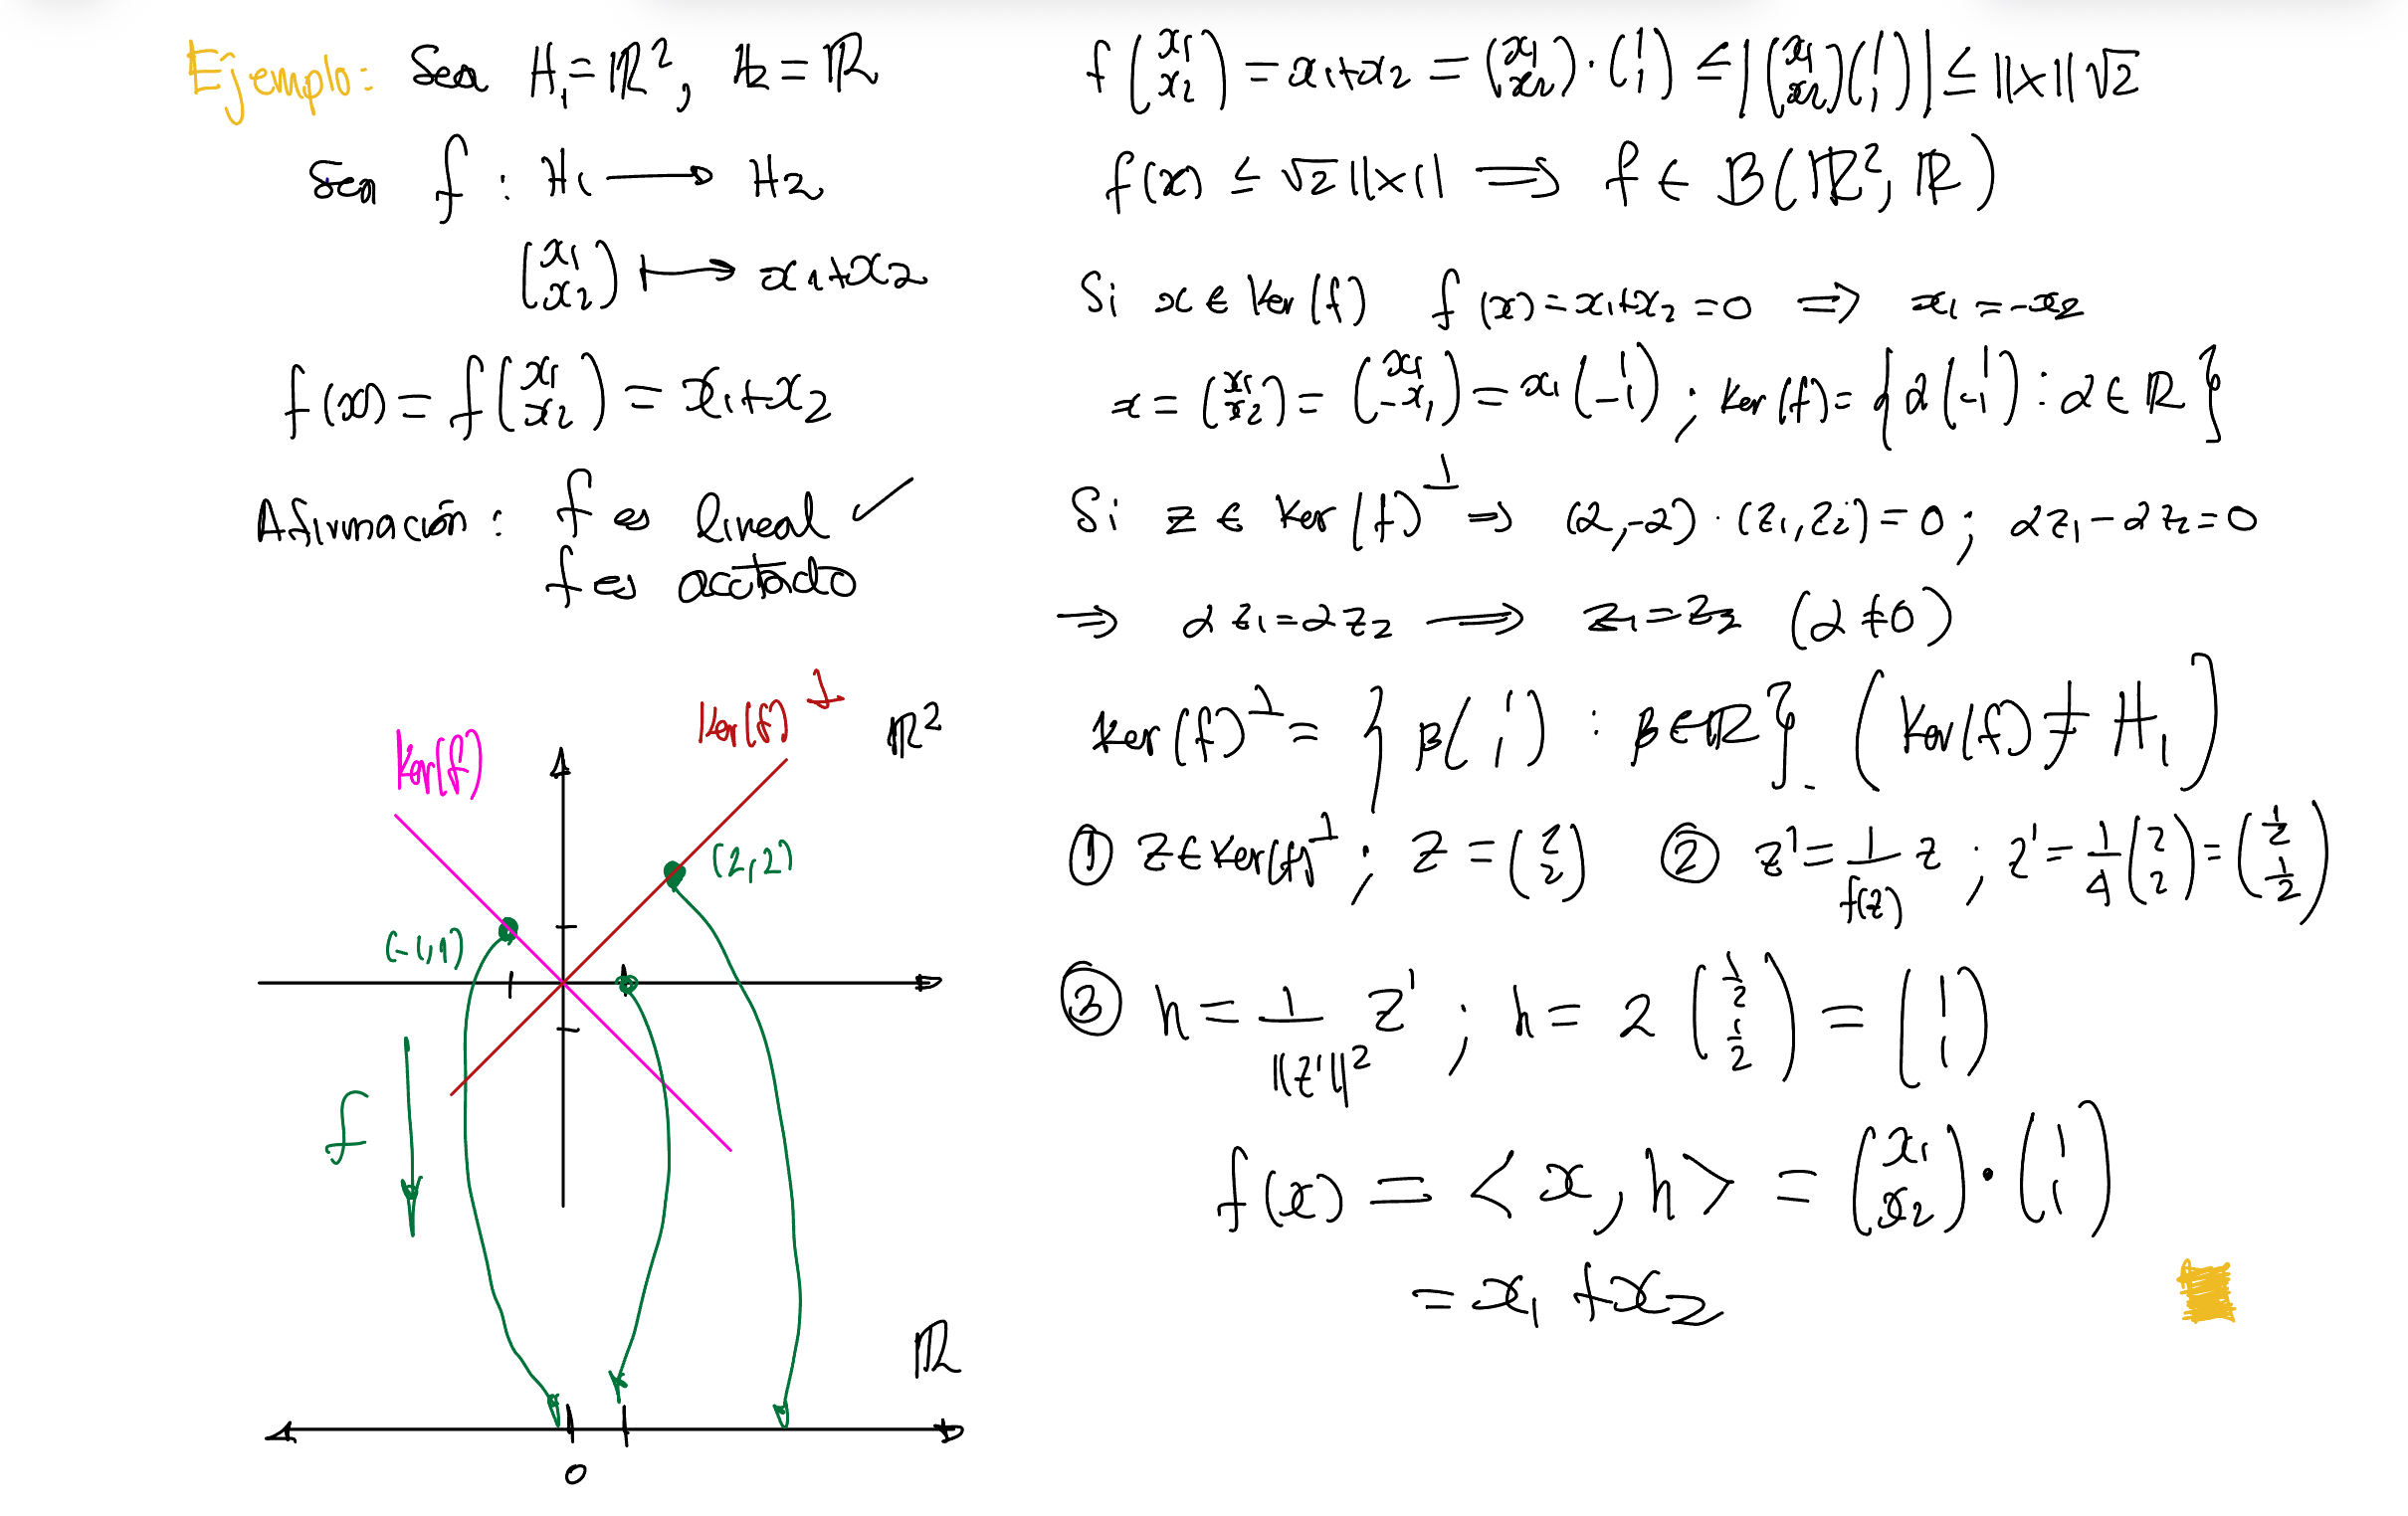 Ejemplo: Sea H₁ = ℝ², H₂ = ℝ
Sea f : H₁ ⟶ H₂
(x₁ x₂) ⟼ x₁+x₂
f(x) = f(x₁ x₂) = x₁+x₂
Afirmación: f es lineal ✓
f es acotado
Ker(f)
Ker(f)^⊥
ℝ²
(2,2)
(-1,1)
f
ℝ
0
f(x₁ x₂) = x₁+x₂ = (x₁ x₂)·(1 1) ≤ |(x₁ x₂)(1 1)| ≤ ||x||√2
f(x) ≤ √2 ||x|| ⟹ f ∈ B(ℝ², ℝ)
Si x ∈ Ker(f) f(x) = x₁+x₂ = 0 ⟹ x₁ = -x₂
x = (x₁ x₂) = (x₁ -x₁) = x₁(1 -1) ; Ker(f) = {α(1 -1) : α ∈ ℝ}
Si z ∈ Ker(f)^⊥ ⟹ (α,-α)·(z₁,z₂) = 0 ; αz₁ - αz₂ = 0
⟹ αz₁ = αz₂ ⟹ z₁ = z₂ (α ≠ 0)
Ker(f)^⊥ = {β(1 1) : β ∈ ℝ}. (Ker(f) ≠ H₁)
① z ∈ Ker(f)^⊥ ; z = (2 2) ② z' = 1/f(z) z ; z' = 1/4 (2 2) = (1/2 1/2)
③ h = 1/||z'||² z' ; h = 2 (1/2 1/2) = (1 1)
f(x) = <x, h> = (x₁ x₂)·(1 1)
= x₁ + x₂